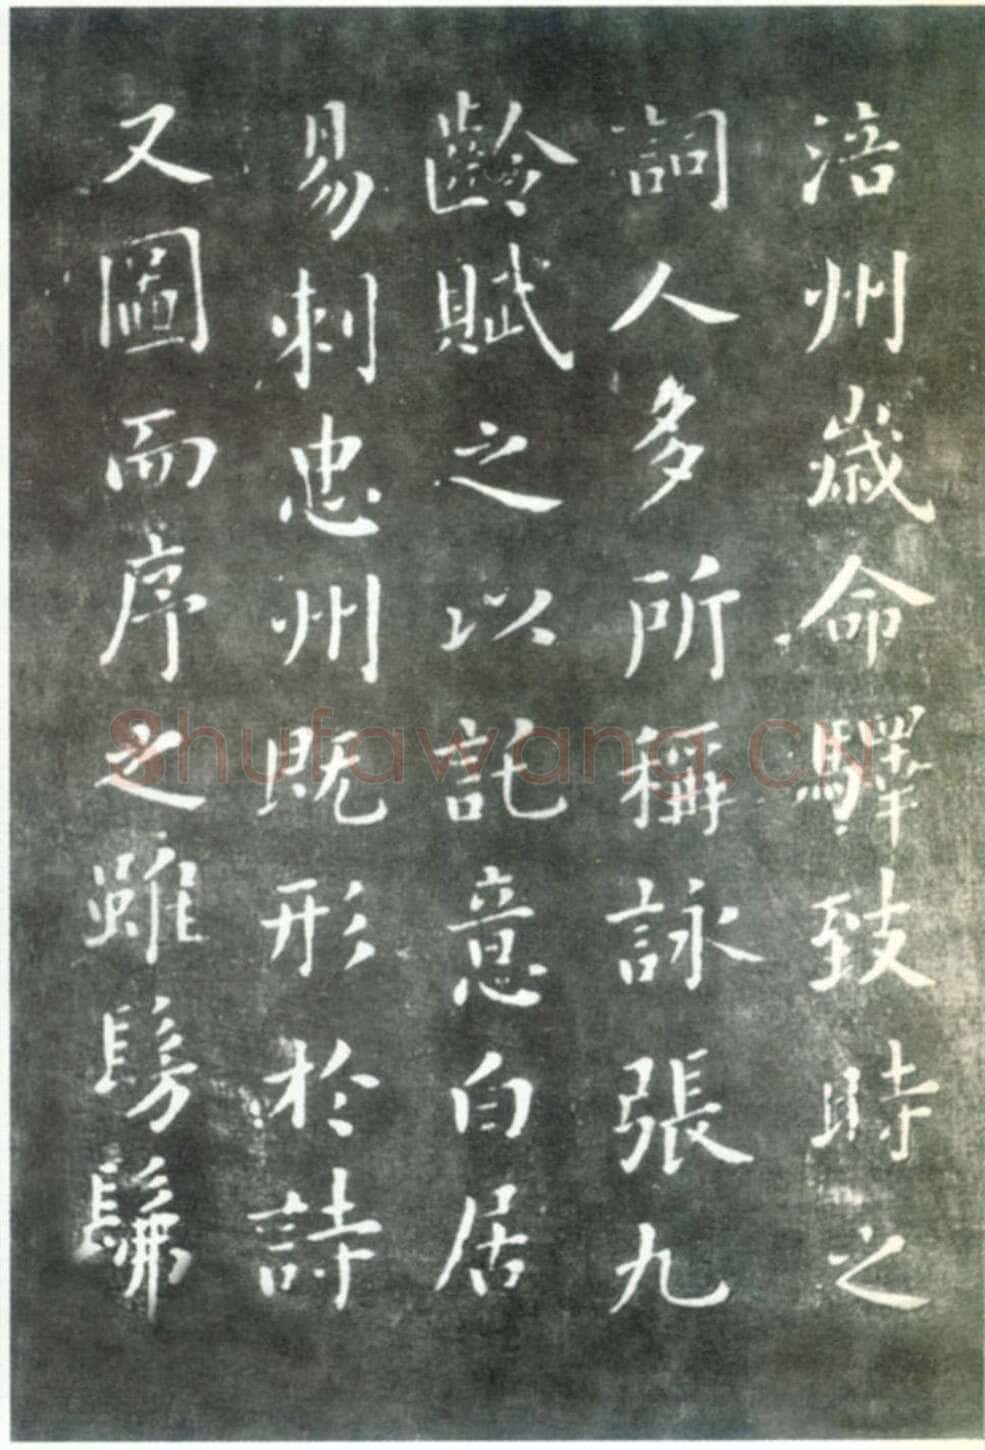 涪州歲命驛致時之
詞人多所稱詠張九
齡賦之以託意白居
易刺忠州既形於詩
又圖而序之雖髣髴
Shufawang.CN